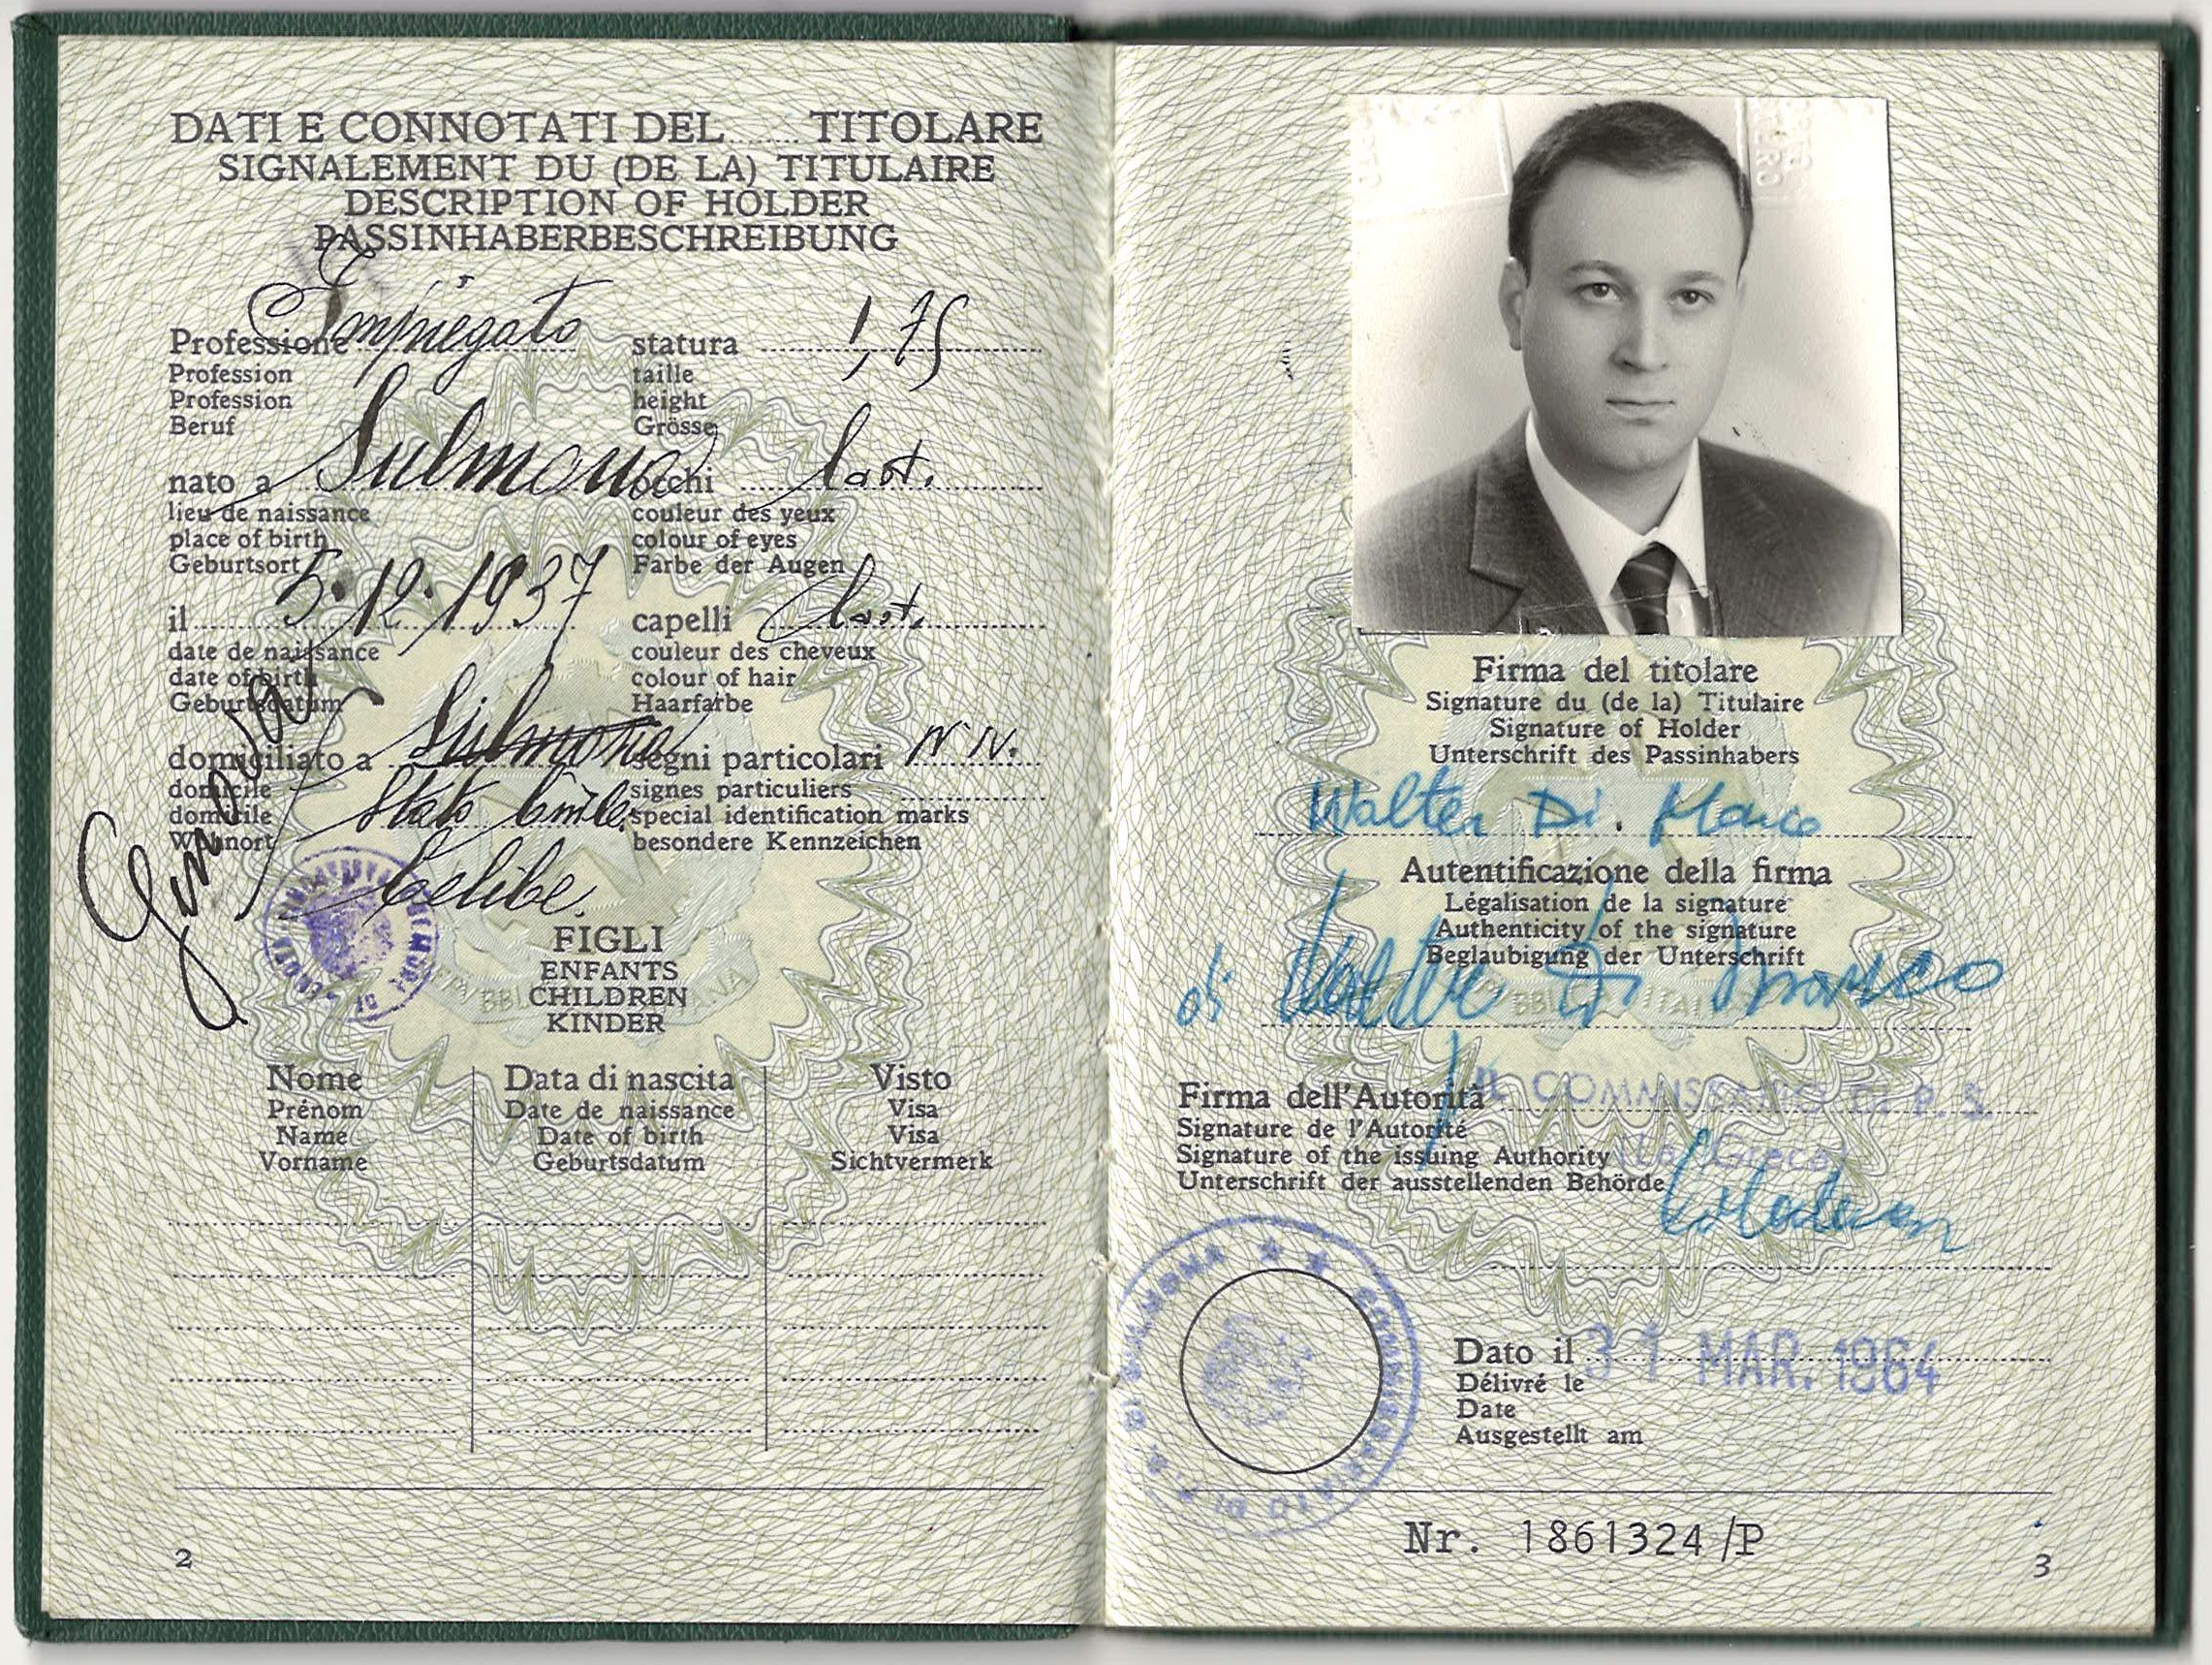 DATI E CONNOTATI DEL...... TITOLARE
SIGNALEMENT DU (DE LA) TITULAIRE
DESCRIPTION OF HOLDER
PASSINHABERBESCHREIBUNG
Professione Impiegato
Profession
Profession
Beruf
nato a Sulmona
lieu de naissance
place of birth
Geburtsort
il 5.12.1937
date de naissance
date of birth
Geburtsdatum
domiciliato a Sulmona
domicile
domicile
Wohnort
Genova
Stato Civile
Celibe.
statura 1,75
taille
height
Grösse
occhi Cast.
couleur des yeux
colour of eyes
Farbe der Augen
capelli Cast.
couleur des cheveux
colour of hair
Haarfarbe
segni particolari N.N.
signes particuliers
special identification marks
besondere Kennzeichen
FIGLI
ENFANTS
CHILDREN
KINDER
Nome Data di nascita Visto
Prénom Date de naissance Visa
Name Date of birth Visa
Vorname Geburtsdatum Sichtvermerk
2
Firma del titolare
Signature du (de la) Titulaire
Signature of Holder
Unterschrift des Passinhabers
Walter Di Marco
Autentificazione della firma
Légalisation de la signature
Authenticity of the signature
Beglaubigung der Unterschrift
di Walter Di Marco
Firma dell'Autorità IL COMMISSARIO DI P. S.
Signature de l'Autorité
Signature of the issuing Authority
Unterschrift der ausstellenden Behörde
COMMISSARIATO DI P. S. DI SULMONA
Dato il 31 MAR. 1964
Délivré le
Date
Ausgestellt am
Nr. 1861324/P
3